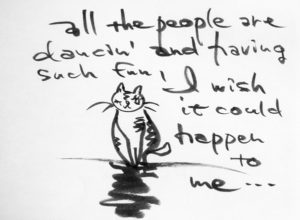 all the people are
dancin' and having
such fun! I wish
it could
happen
to
me...